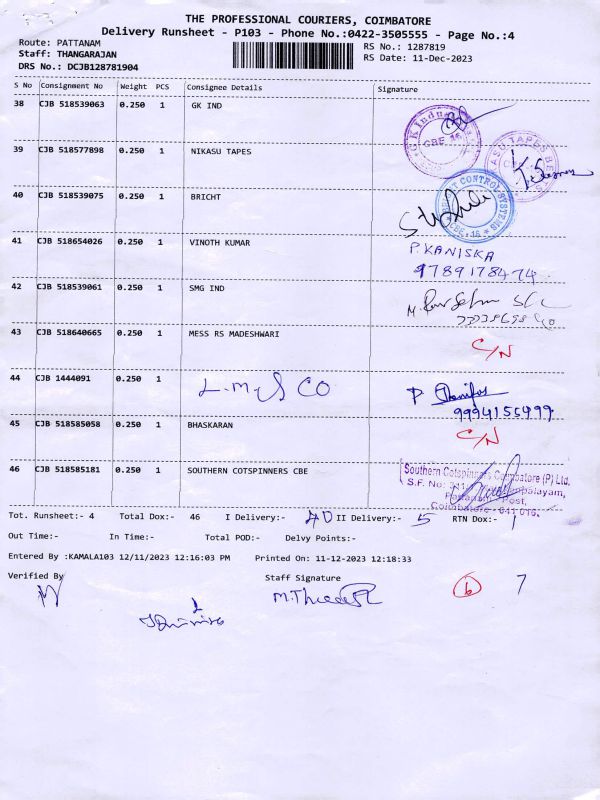 THE PROFESSIONAL COURIERS, COIMBATORE
Delivery Runsheet - P103 - Phone No.:0422-3505555 - Page No.:4
Route: PATTANAM
RS No.: 1287819
Staff: THANGARAJAN
RS Date: 11-Dec-2023
DRS No.: DCJB128781904
S No Consignment No Weight PCS Consignee Details Signature
38 CJB 518539063 0.250 1 GK IND
G K Indus CBE. 16
39 CJB 518577898 0.250 1 NIKASU TAPES
40 CJB 518539075 0.250 1 BRICHT
CONTROL SYSTEMS CBE - 16
41 CJB 518654026 0.250 1 VINOTH KUMAR
P.KANISKA
9789178474
42 CJB 518539061 0.250 1 SMG IND
43 CJB 518640665 0.250 1 MESS RS MADESHWARI
C/N
44 CJB 1444091 0.250 1 L.M.S CO
9994155499
45 CJB 518585058 0.250 1 BHASKARAN
C/N
46 CJB 518585181 0.250 1 SOUTHERN COTSPINNERS CBE
Southern Cotspinners Coimbatore (P) Ltd.
S.F. No:
Post,
Coimbatore - 641 016.
Tot. Runsheet:- 4 Total Dox:- 46 I Delivery:- 40 II Delivery:- 5 RTN Dox:- 1
Out Time:- In Time:- Total POD:- Delvy Points:-
Entered By :KAMALA103 12/11/2023 12:16:03 PM Printed On: 11-12-2023 12:18:33
Verified By Staff Signature
6 7